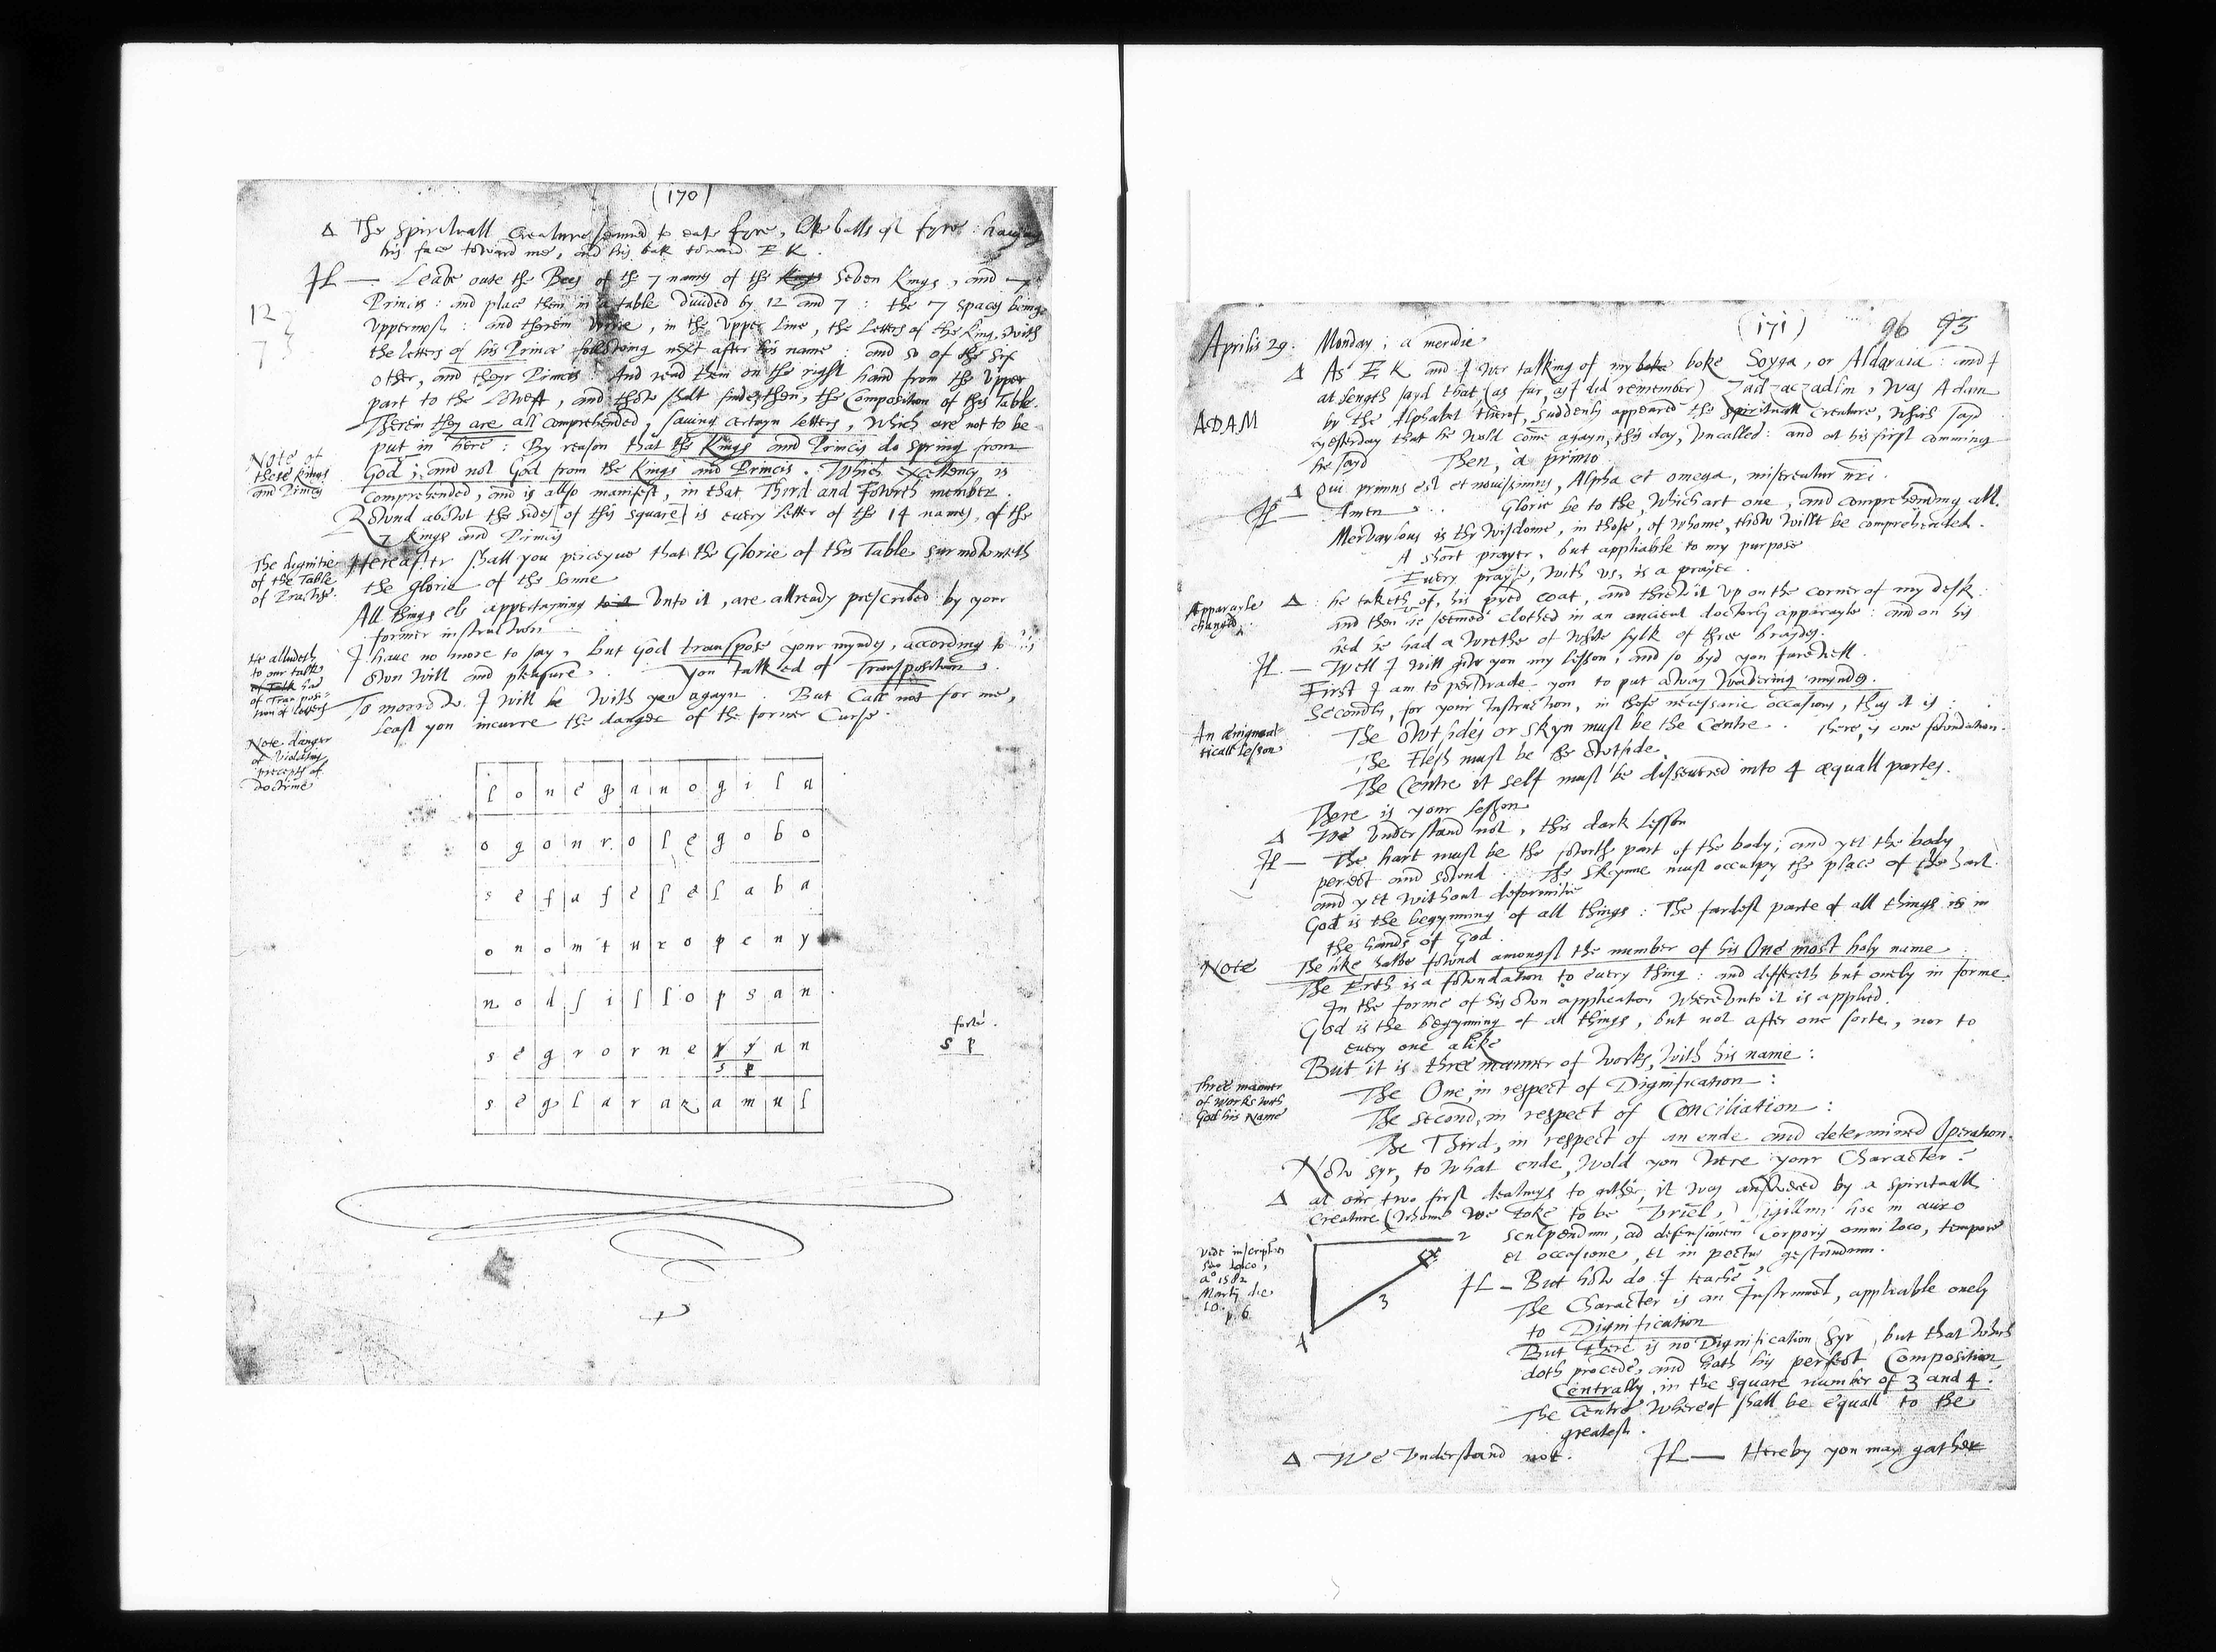 (170)
Δ The spirituall Creature semed to eate fyre, like balls of fyre: having
his face toward me, and his bak toward E K.
IL — Leave oute the Bees of the 7 names of the Kings Seven Kings, and 7
12
7
Princis: and place them in a table divided by 12 and 7: the 7 spaces being
uppermost: and therein write, in the upper line, the letters of the King, with
the letters of his Prince following next after his name: and so of the six
other, and theyr Princis. And read them on the right hand from the Upper
part to the lowest, and thow shalt finde, then, the Composition of this Table.
Therein they are all comprehended, saving certayn letters, which are not to be
put in here: By reason that the Kings and Princis do spring from
Note of
these kings
and Princis
God; and not God from the Kings and Princis. Which excellency is
Comprehended, and is allso manifest, in that Third and Fowrth member.
Rownd abowt the sides of this square is every letter of the 14 names, of the
7 Kings and Princis
The dignitie
of the Table
of Practise.
Hereafter shall you perceyve that the Glorie of this Table surmownteth
the glorie of the sonne
All things els appertayning to it Unto it, are allready prescribed by your
former instruction
He alludeth
to our talk
of Talk had
of Transposi-
tion of letters
I have no more to say, but God transpose your myndes, according to his
own will and pleasure. You talked of Transposition.
To morow I will be with you agayn. But Call not for me,
least you incurre the danger of the former Curse.
Note danger
of violating
precepts of
doctrine
l o n e g a n o g i l a
o g o n r o l e g o b o
s e f a f e l e l a b a
o n o m t u r o p c n y
n o d s i l l o p s a n
s e g r o r n e y y a n
s p
s e g l a r a z a m u l
forte.
s p
(171) 96 93
Aprilis 29. Monday: a meridie
Δ As E K and I wer talking of my boke boke Soyga, or Aldaraia: and I
at length sayd that, (as far, as I did remember) Zadzaczadlin, was Adam
ADAM
by the Alphabet therof, suddenly appeared the spirituall creature, which sayd
yesterday that he wold come agayn, this day, uncalled: and at his first comming
he sayd Then, a primo
Δ Qui primus est et novissimus, Alpha et omega, misereatur nri.
IL — Amen. Glorie be to the, which art one, and comprehending all.
Mervaylous is thy wisdome, in those, of whome, thow wilt be comprehended.
A short prayer, but appliable to my purpose
Every prayse, with us, is a prayer.
Apparayle
changed.
Δ: he taketh of, his pyed coat, and threw it up on the corner of my desk:
and then he semed clothed in an ancient doctorly apparayle: and on his
hed he had a wrethe of white sylk of three braydes.
IL — Well I will give you my lesson, and so byd you farewell.
First I am to perswade you to put away wandering myndes.
Secondly, for your Instruction, in these necessarie occasions, thus it is:
An ænigmat-
ticall lesson
The owt sides or skyn must be the Centre. There, is one fowndation.
The Flesh must be the owtside
The Centre it self must be dissevered into 4 æquall partes.
There is your lesson
Δ We understand not, this dark lesson
IL — The hart must be the fowrth part of the body: and yet the body,
perfect and sownd. The skynne must occupy the place of the hart:
and yet without deformitie
God is the begynning of all things: The fardest parte of all things is in
the hands of God.
Note
The like shalbe fownd amongst the number of his One most holy name
The Erth is a fowndation to every thing: and differeth but onely in forme.
In the forme of his own application whereunto it is applyed.
God is the begynning of all things, but not after one sorte, nor to
every one alike
But it is three manner of works, with his name:
Three manner
of works with
God his Name
The One, in respect of Dignification:
The second, in respect of Conciliation:
The Third, in respect of an ende and determined Operation.
Now syr, to what ende, wold you were your Character?
Δ at our two first dealings together, it was answered by a spirituall
creature (whome we toke to be Uriel,) Sigillum hoc in auro
sculpendum, ad defensionem Corporis omni loco, tempore
et occasione, et in pectus gestandum.
Vide inscript
suo loco,
aº 1582
Martij die
10.
p. 6
2
3
4
IL — But how do I teache?
The Character is an Instrument, appliable onely
to Dignification
But there is no Dignification, Syr, but that which
doth procede, and hath his perfect Composition,
Centrally, in the square number of 3 and 4.
The Centre whereof shall be equall to the
greatest.
Δ We understand not. IL — Hereby you may gather